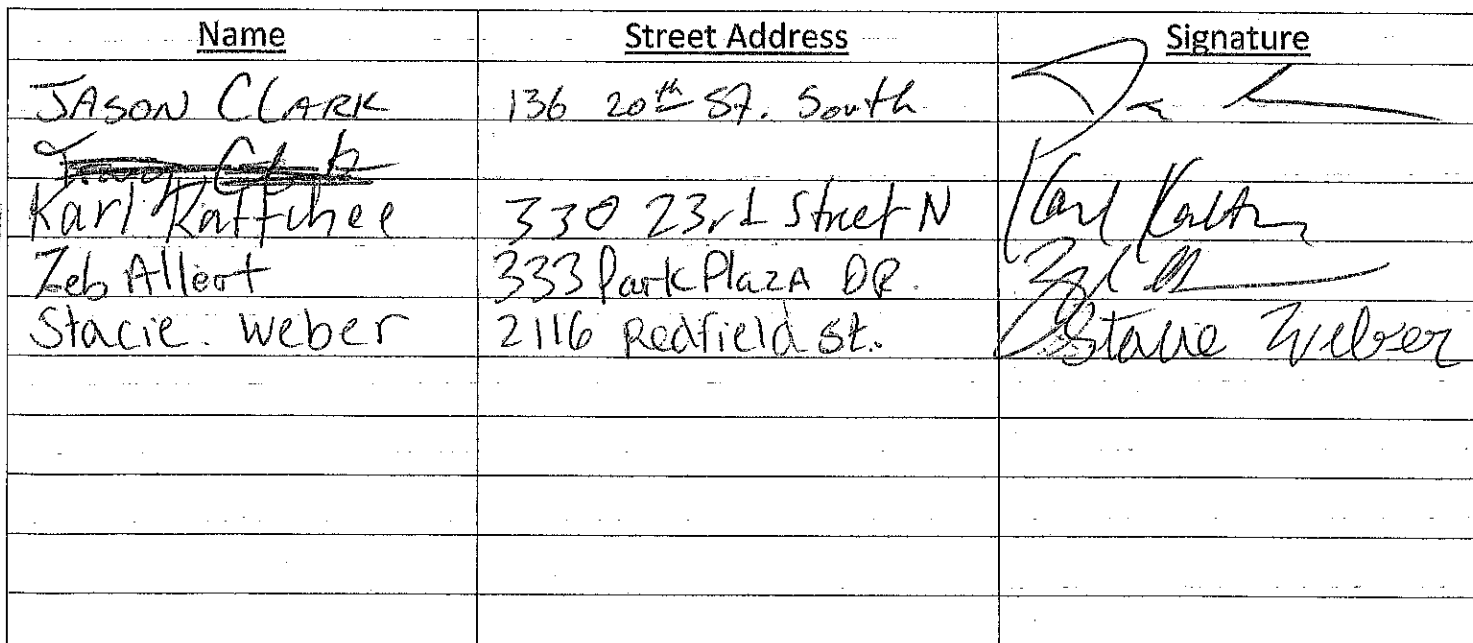 Name Street Address Signature
JASON CLARK 136 20th St. South
Karl 330 23rd Street N Karl
Zeb Allert 333 Park Plaza DR.
Stacie Weber 2116 Redfield St. Stacie Weber